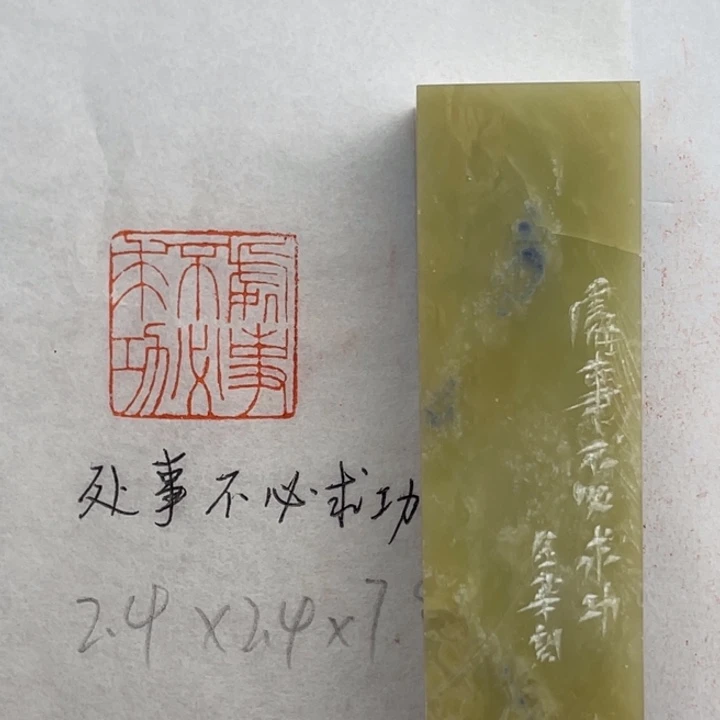 處事不必求功
处事不必求功
2.4×2.4×7.
處事不必求功
刻